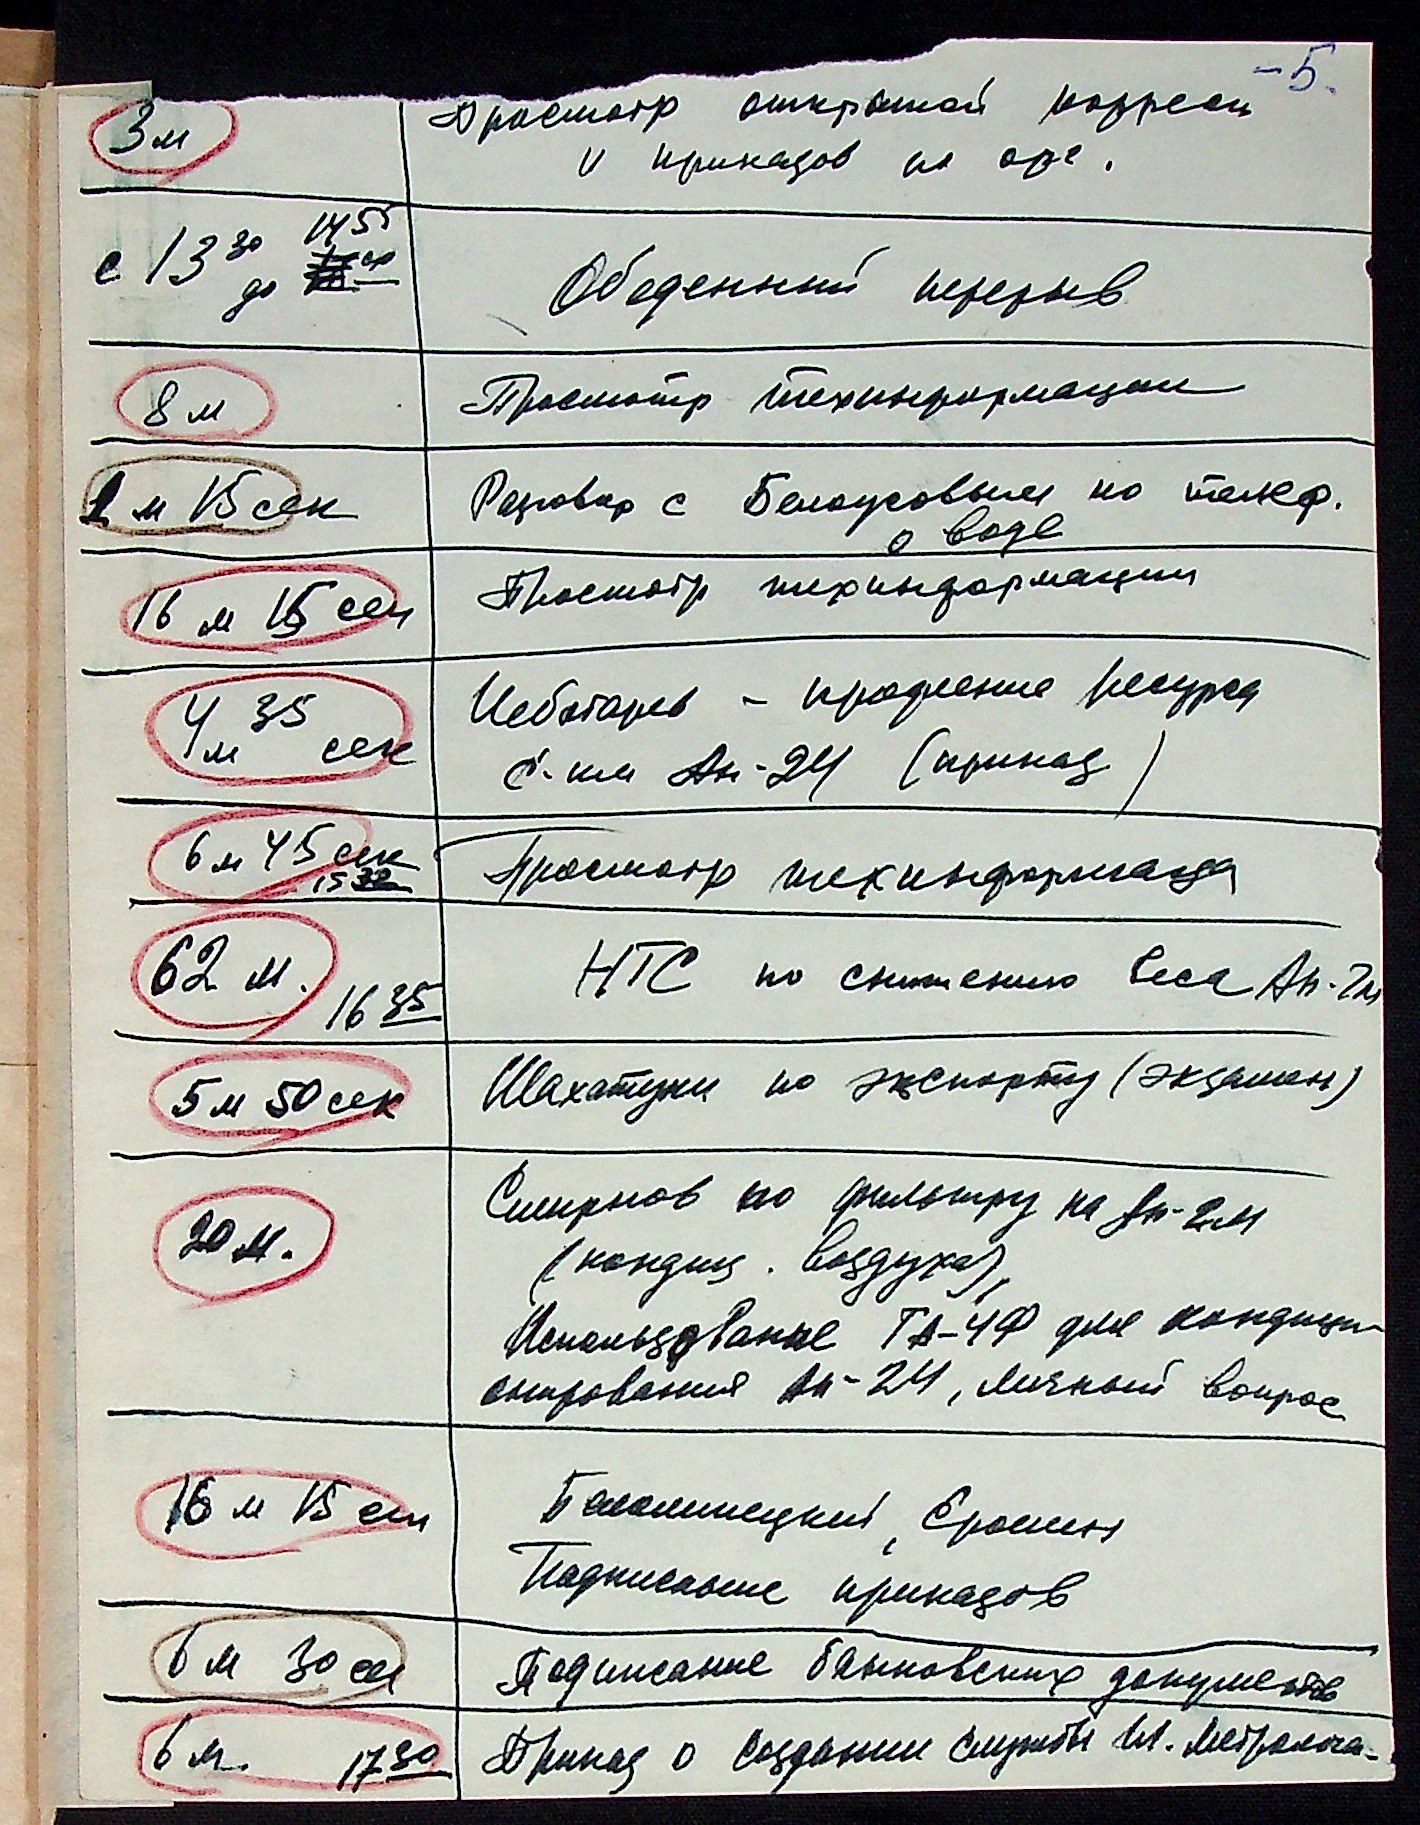 -5.
3 м Просмотр открытой корресп
и приказов по орг.
с 13 30 до 14 55 Обеденный перерыв
8 м Просмотр техинформации
1 м 15 сек Разговор с Белоусовым по телеф.
о воде
16 м 15 сек Просмотр техинформации
4 м 35 сек Чеботарев - продление ресурса
с-там Ан-24 (приказ)
6 м 45 сек Просмотр техинформации
15 32
62 м. НТС по снижению веса Ан-2м
16 35
5 м 50 сек Шахатуни по экспорту (экзамен)
20 м. Смирнов по фильтру на Ан-2м
(кондиц. воздуха),
Использование ТА-4Ф для кондици-
онирования Ан-24, личный вопрос
16 м 15 сек Белолипецкий, Ерошин
Подписание приказов
6 м 30 сек Подписание банковских документов
6 м. 17 30 Приказ о создании службы гл. метролога-